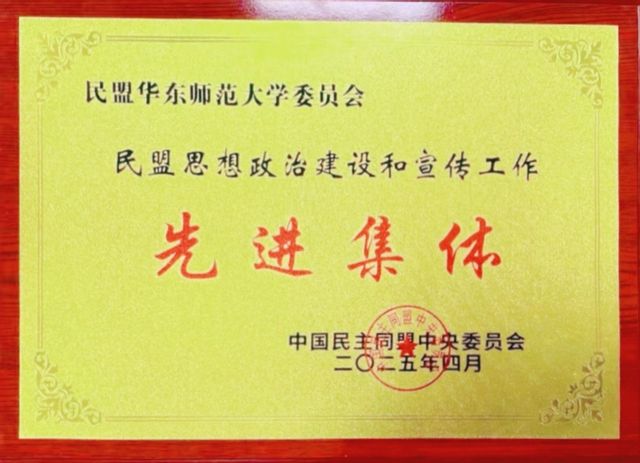 民盟华东师范大学委员会
民盟思想政治建设和宣传工作
先进集体
中国民主同盟中央委员会
二〇二五年四月